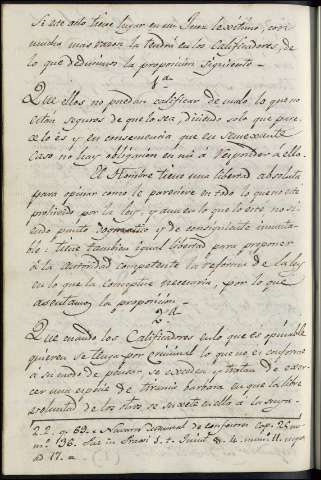 Si este acto tiene lugar en un Juez lexitimo, con
mucha mas razon la tendrá en los Calificadores, de
lo que deducimos la proposicion siguiente.
1ª
Que ellos no puedan calificar de malo lo que no
estan seguros de que lo sea, diciendo solo que pare-
ce lo es y en consecuencia que en semejante
Caso no hay obligacion en mi á responder á ello.
El Hombre tiene una libertad absoluta
para opinar como le pareciere en todo lo que no esté
prohivido por la Ley, y aun en lo que lo esté no si-
endo punto dogmatico y de consiguiente inmuta-
ble, tiene tambien igual libertad para proponer
á la autoridad competente la reforma de la ley
en lo que la conceptue necesaria, por lo que
asentamos la proposicion.
2ª
Que cuando los Calificadores en lo que es opinable
quieren se tenga por criminal lo que no es conforme
á su modo de pensar se exceden y tratan de exer-
cer una especie de tirania barbara en que la libre
voluntad de los otros se sujete en ello á la suya.
2.2. q. 69. Navarro Cap. 25.
num. 136. 4. num. 11. usque
ad 17.